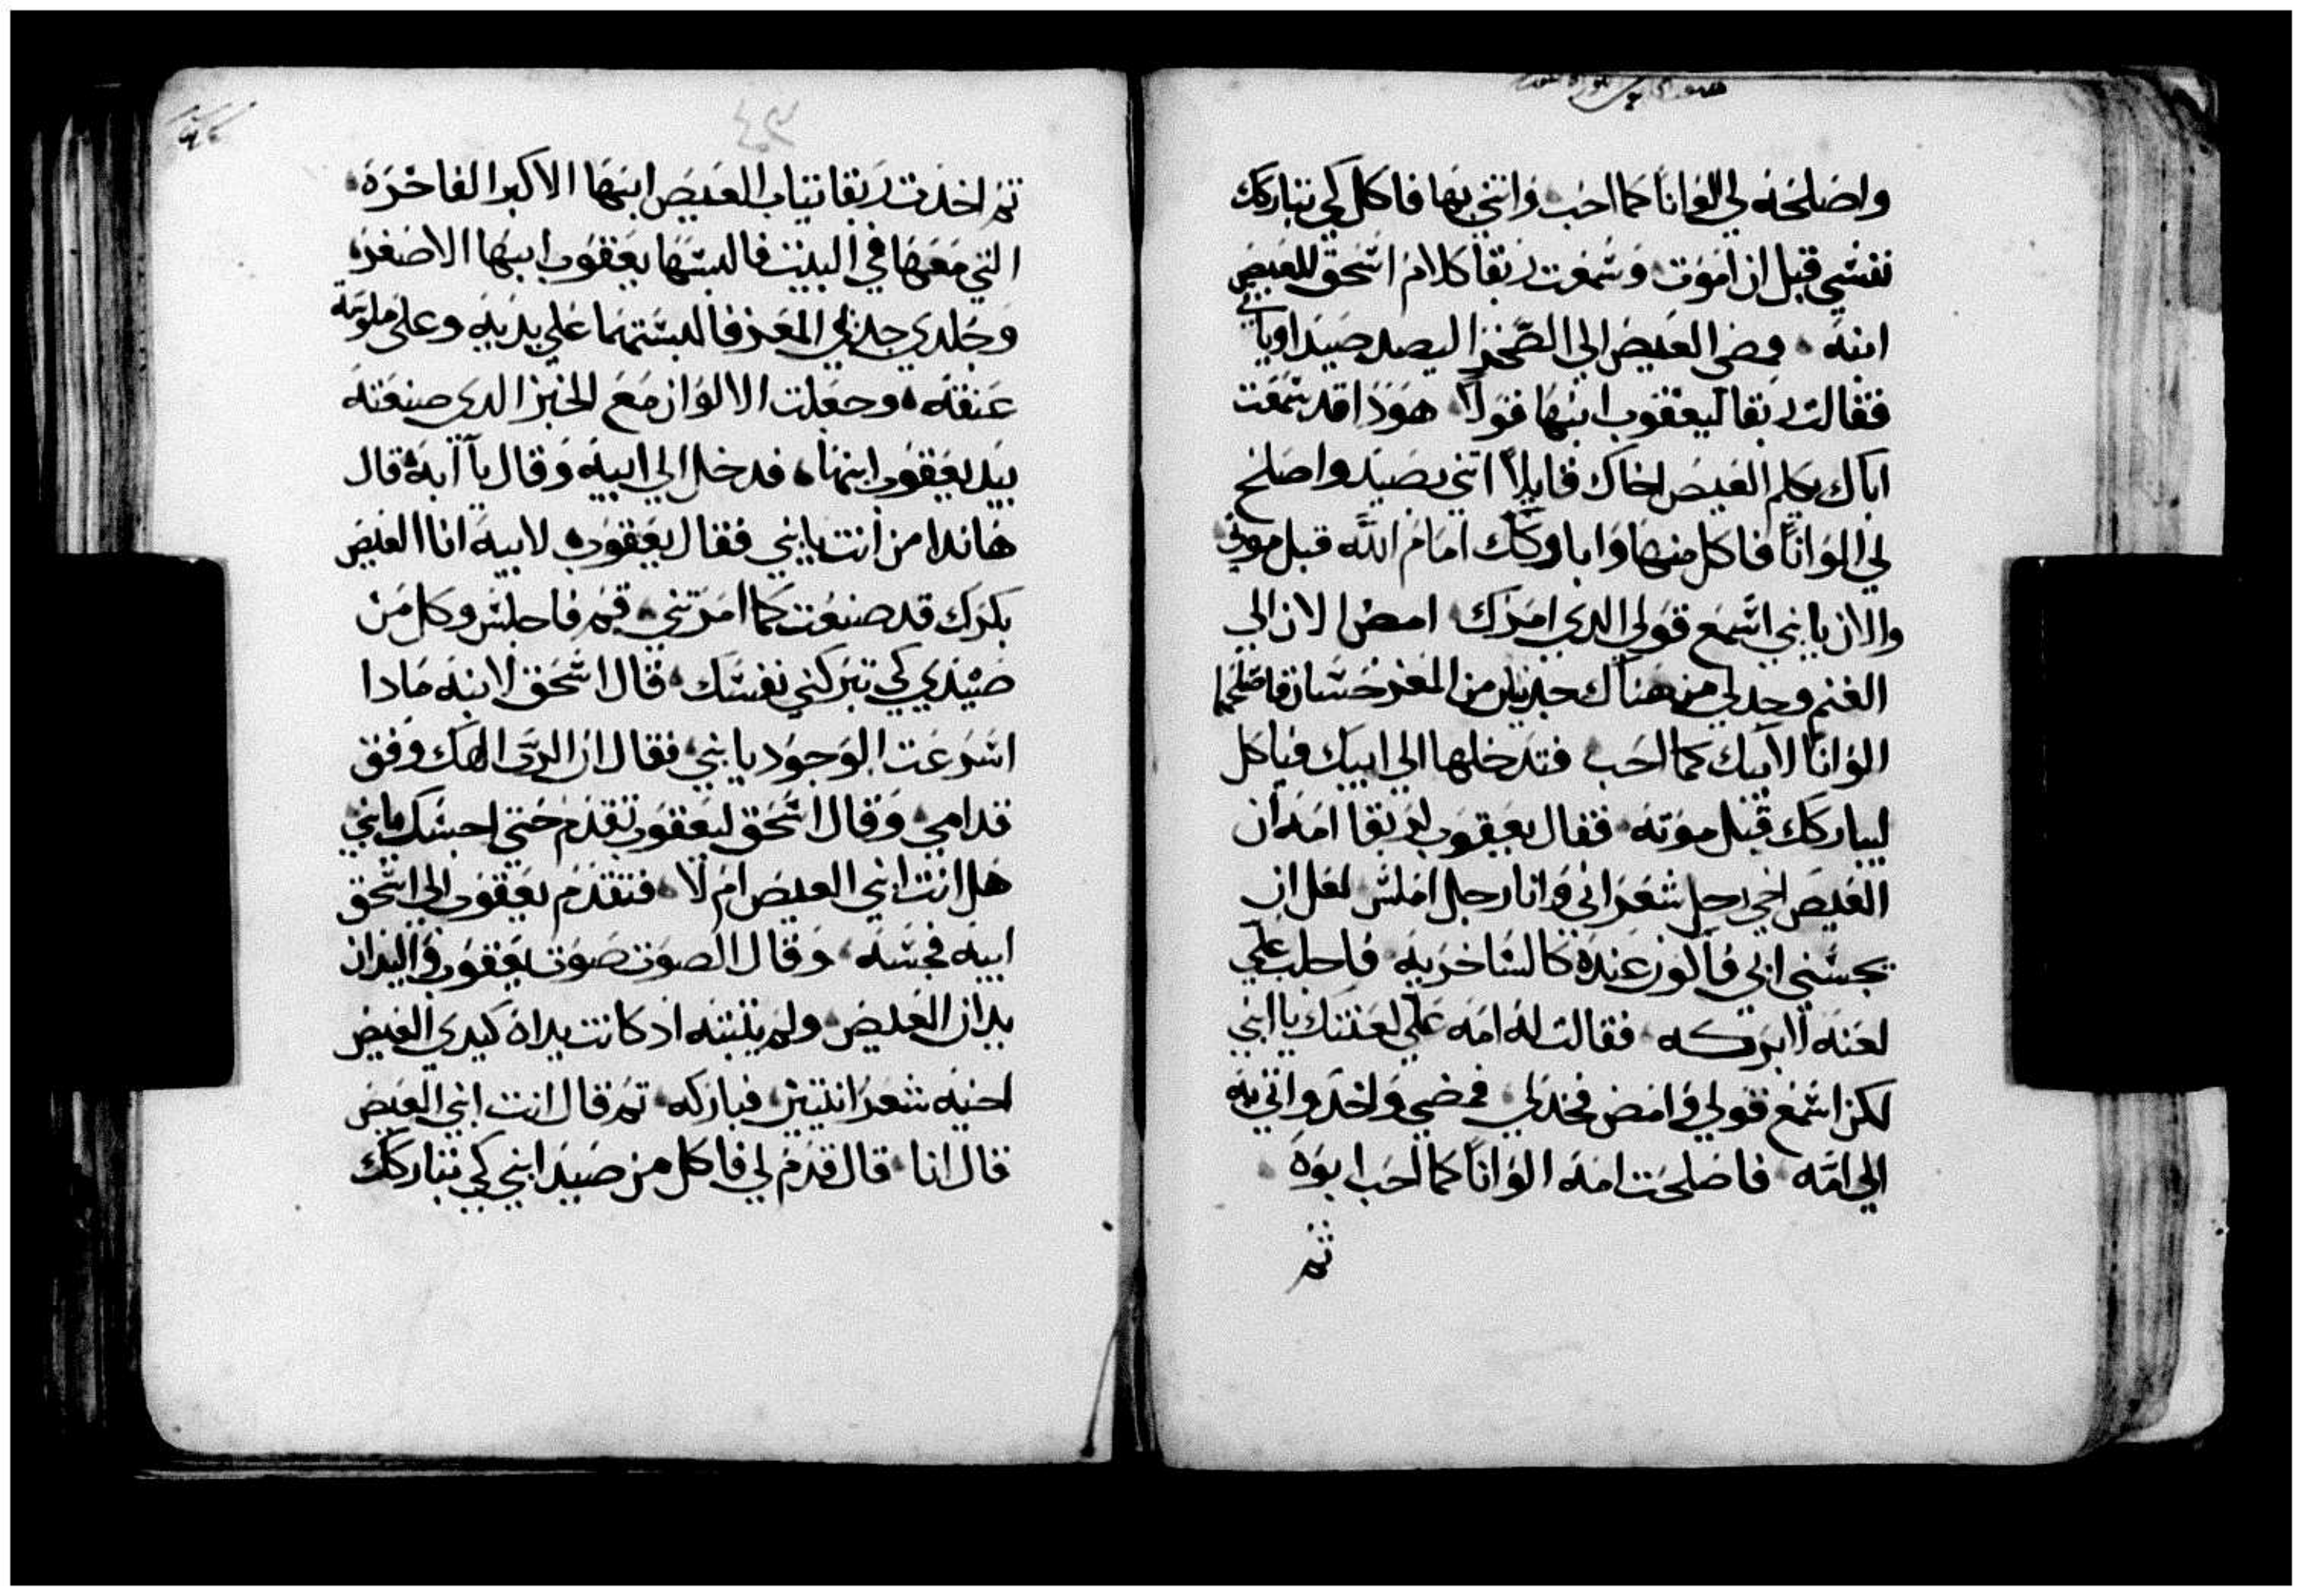 واصلحه لي الوانا كما احب وائتني بها فاكل لكي تباركك
نفسي قبل ان اموت وسمعت ربقا كلام اسحق للعيص
ابنه فمضى العيص الي الصحرا ليصد صيدا وياتي
فقالت ربقا ليعقوب ابنها قولا هوذا قد سمعت
اباك يكلم العيص اخاك قايلا ائتني بصيد واصلح
لي الوانا فاكل منها وابارکك امام الله قبل موتي
والان يا بني اسمع قولي الدي امرك امض الان الي
الغنم وخد لي من هناك جديين من المعز حسان فاصلحهما
الوانا لابيك كما احب فتدخلها الي ابيك فياكل
ليباركك قبل موته فقال يعقوب لربقا امه ان
العيص اخي رجل شعراني وانا رجل املس لعل ان
يجسني ابي فاكون عنده كالساخر به فاجلب علي
لعنه لا بركه فقالت له امه علي لعنتك يا ابني
لكن اسمع قولي وامض فخد لي فمضي واخد واتي به
الي امه فاصلحت امه الوانا كما احب ابوه
ثم
ثم اخدت ربقا ثياب العيص ابنها الاكبر الفاخرة
التي معها في البيت فالبستها يعقوب ابنها الاصغر
وجلدي جديي المعز فالبستهما علي يديه وعلى ملوسة
عنقه وجعلت الالوان مع الخبز الدي صنعته
بيد يعقوب ابنها فدخل الي ابيه وقال يا ابه قال
هاندا من انت يا بني فقال يعقوب لابيه انا العيص
بكرك قد صنعت كما امرتني قم فاجلس وكل من
صيدي كي تبركني نفسك قال اسحق لابنه مادا
اسرعت الوجود يا بني فقال ان الرب الهك وفق
قدامي وقال اسحق ليعقوب تقدم حتي اجسك يا بني
هل انت ابني العيص ام لا فتقدم يعقوب الي اسحق
ابيه فجسه وقال الصوت صوت يعقوب واليدان
يدان العيص ولم يثبته اد كانت يداه كيدي العيص
اخيه شعرانيتين فباركه ثم قال انت ابني العيص
قال انا قال قدم لي فاكل من صيد ابني كي تباركك